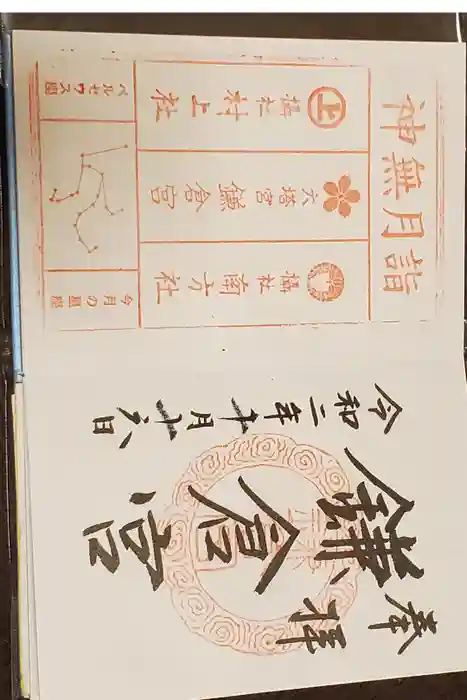 神無月詣
上
摂社 村上社
大塔宮 鎌倉宮
摂社 南方社
ペルセウス座
今月の星座
奉拝
鎌倉宮
令和二年十月十六日